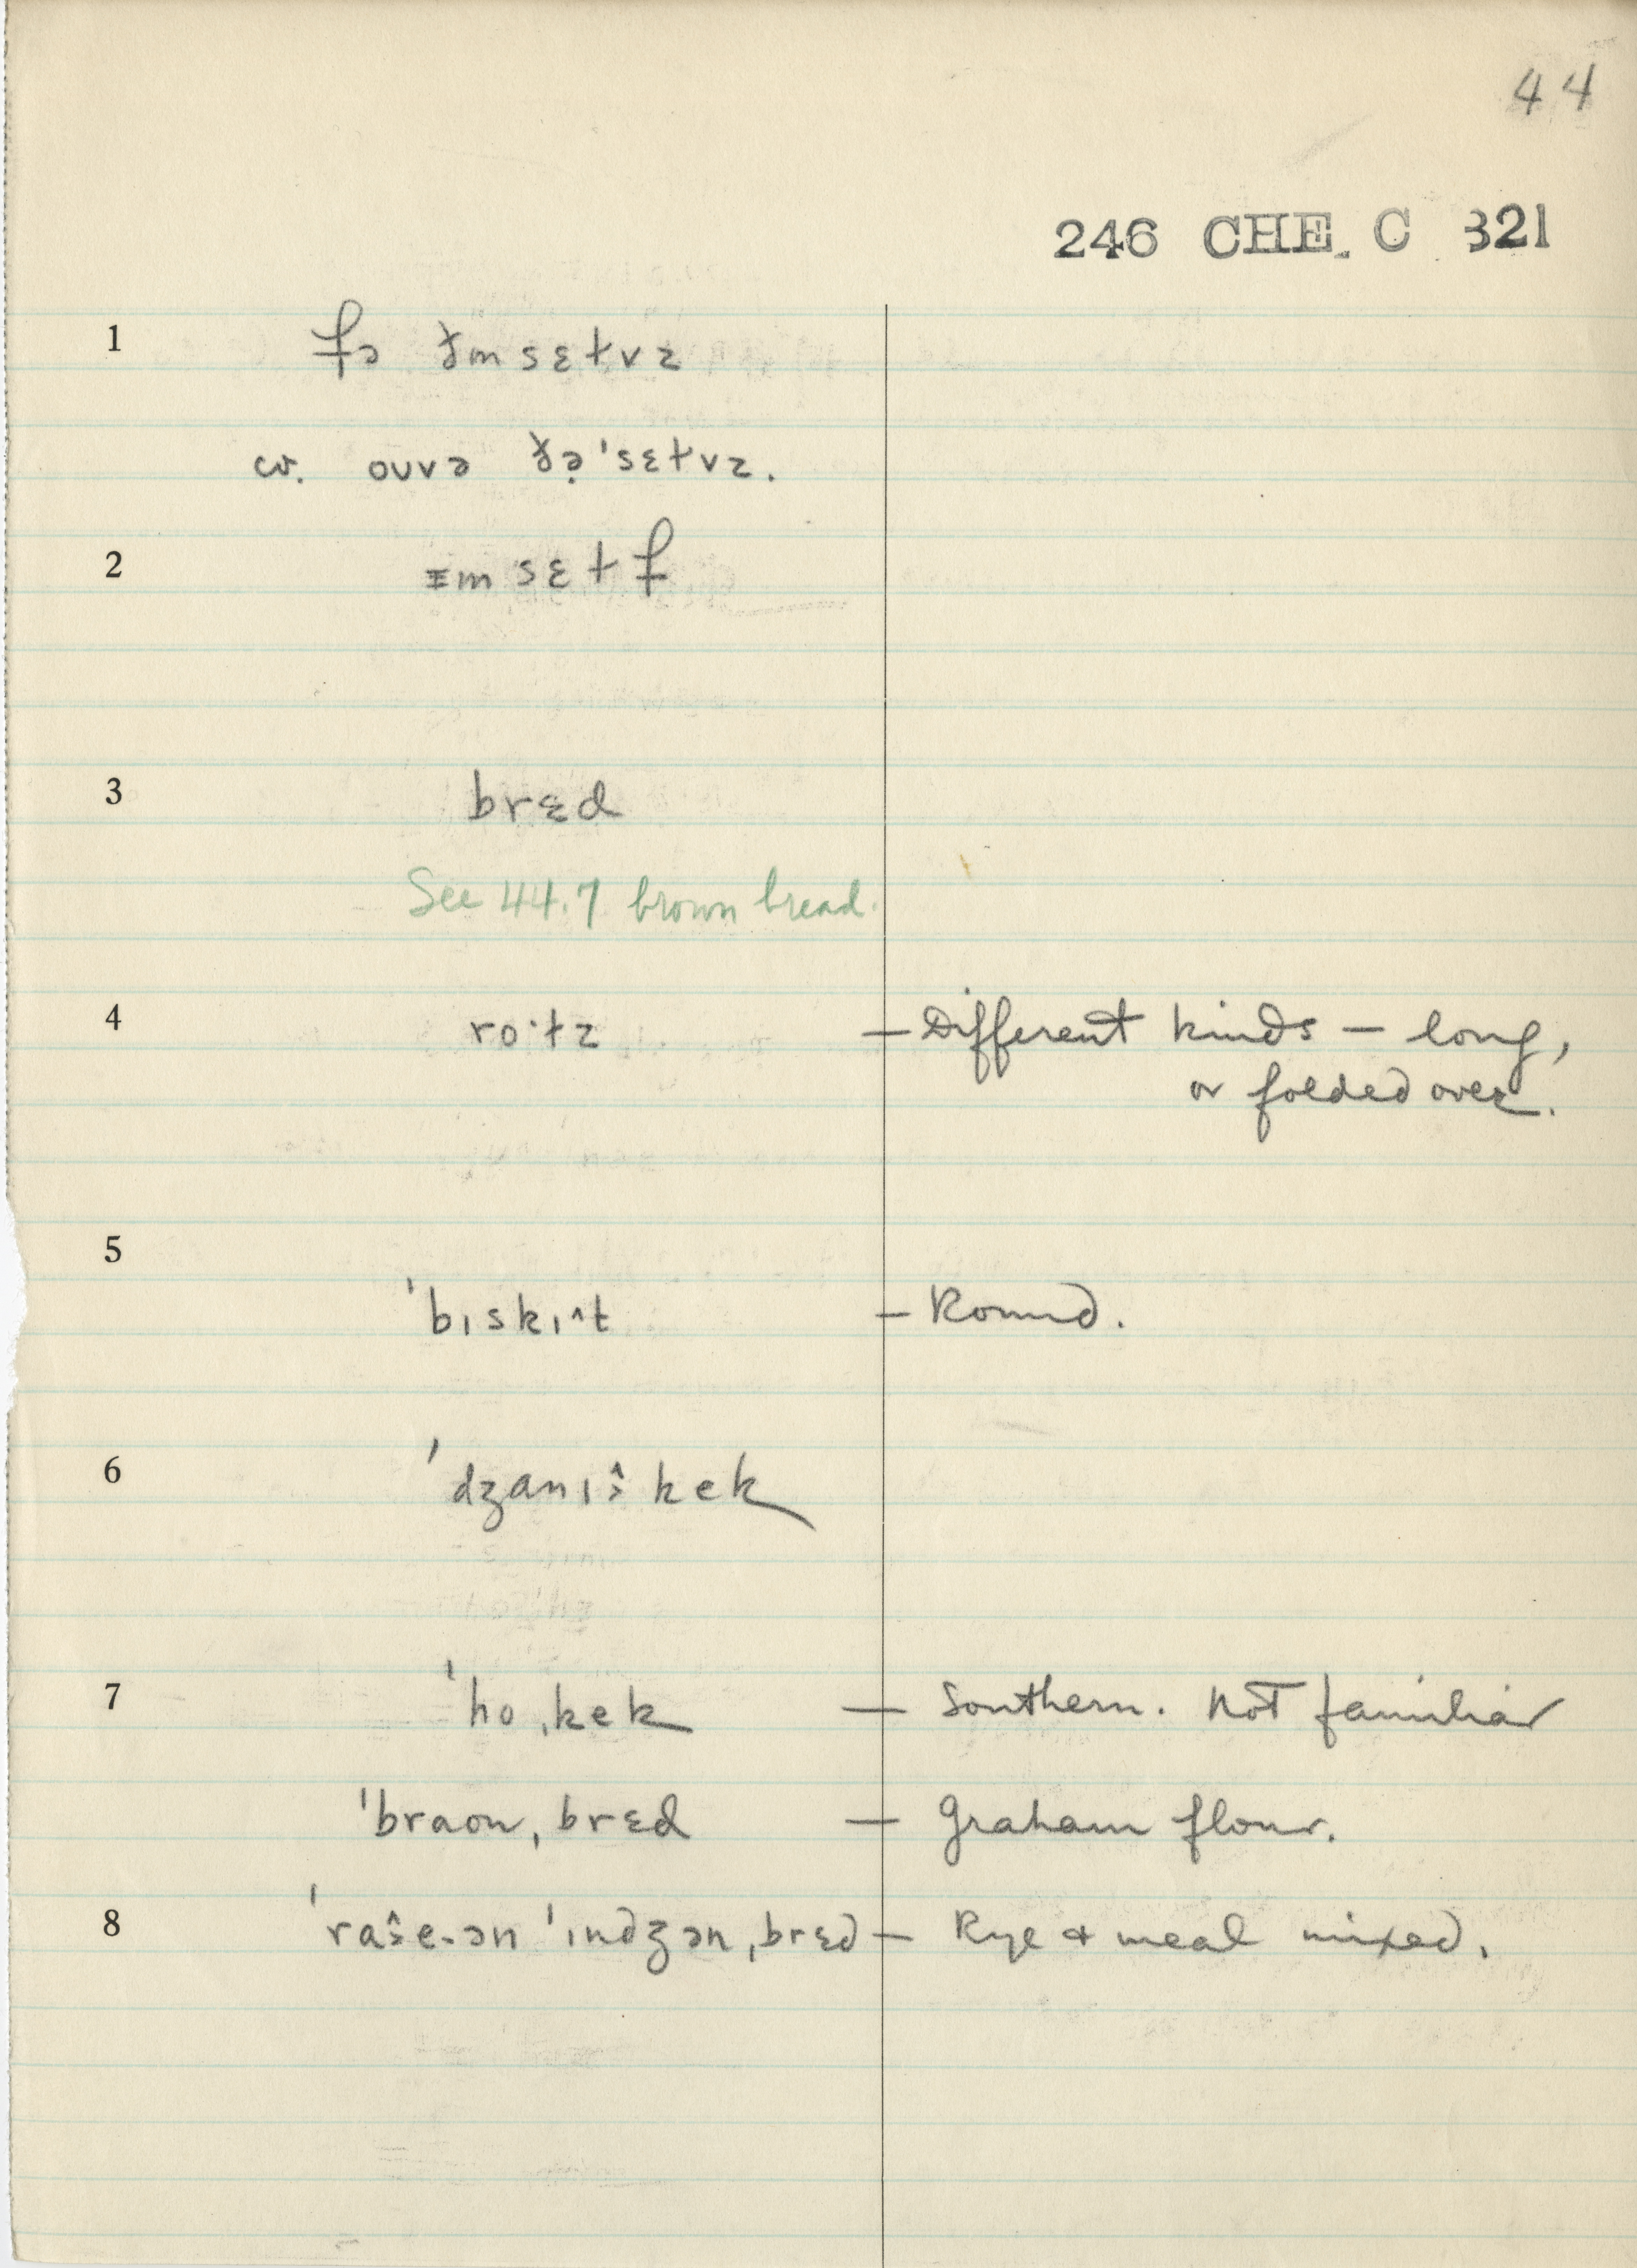 44
246 CHE. C 321
1 fə ðm sɛɫvz
cv. ouvə ðə̣ 'sɛɫvz.
2 ɪm sɛɫf
3 brɛd
See 44.7 brown bread.
4 ro·ɫz — Different kinds — long,
or folded over.
5 'bɪskɪ^t — Round.
6 'dʒanɪ^ kek
7 'ho ˌkek — Southern. Not familiar
'braon ˌbrɛd — Graham flour.
8 'ra^e-ən 'ɪndʒən ˌbrɛd — Rye & meal mixed.